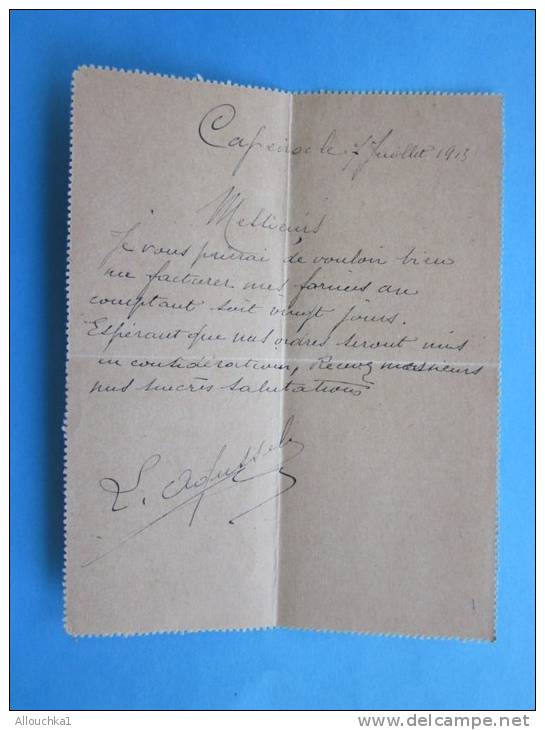 le 7 Juillet 1913
Messieurs
Je vous prirai de vouloir bien
me facturer mes farines au
comptant soit vingt jours.
Espérant que nos ordres seront mis
en considération, Recevez messieurs
mes sincères salutations
L.
Allouchka1
http://www.delcampe.net